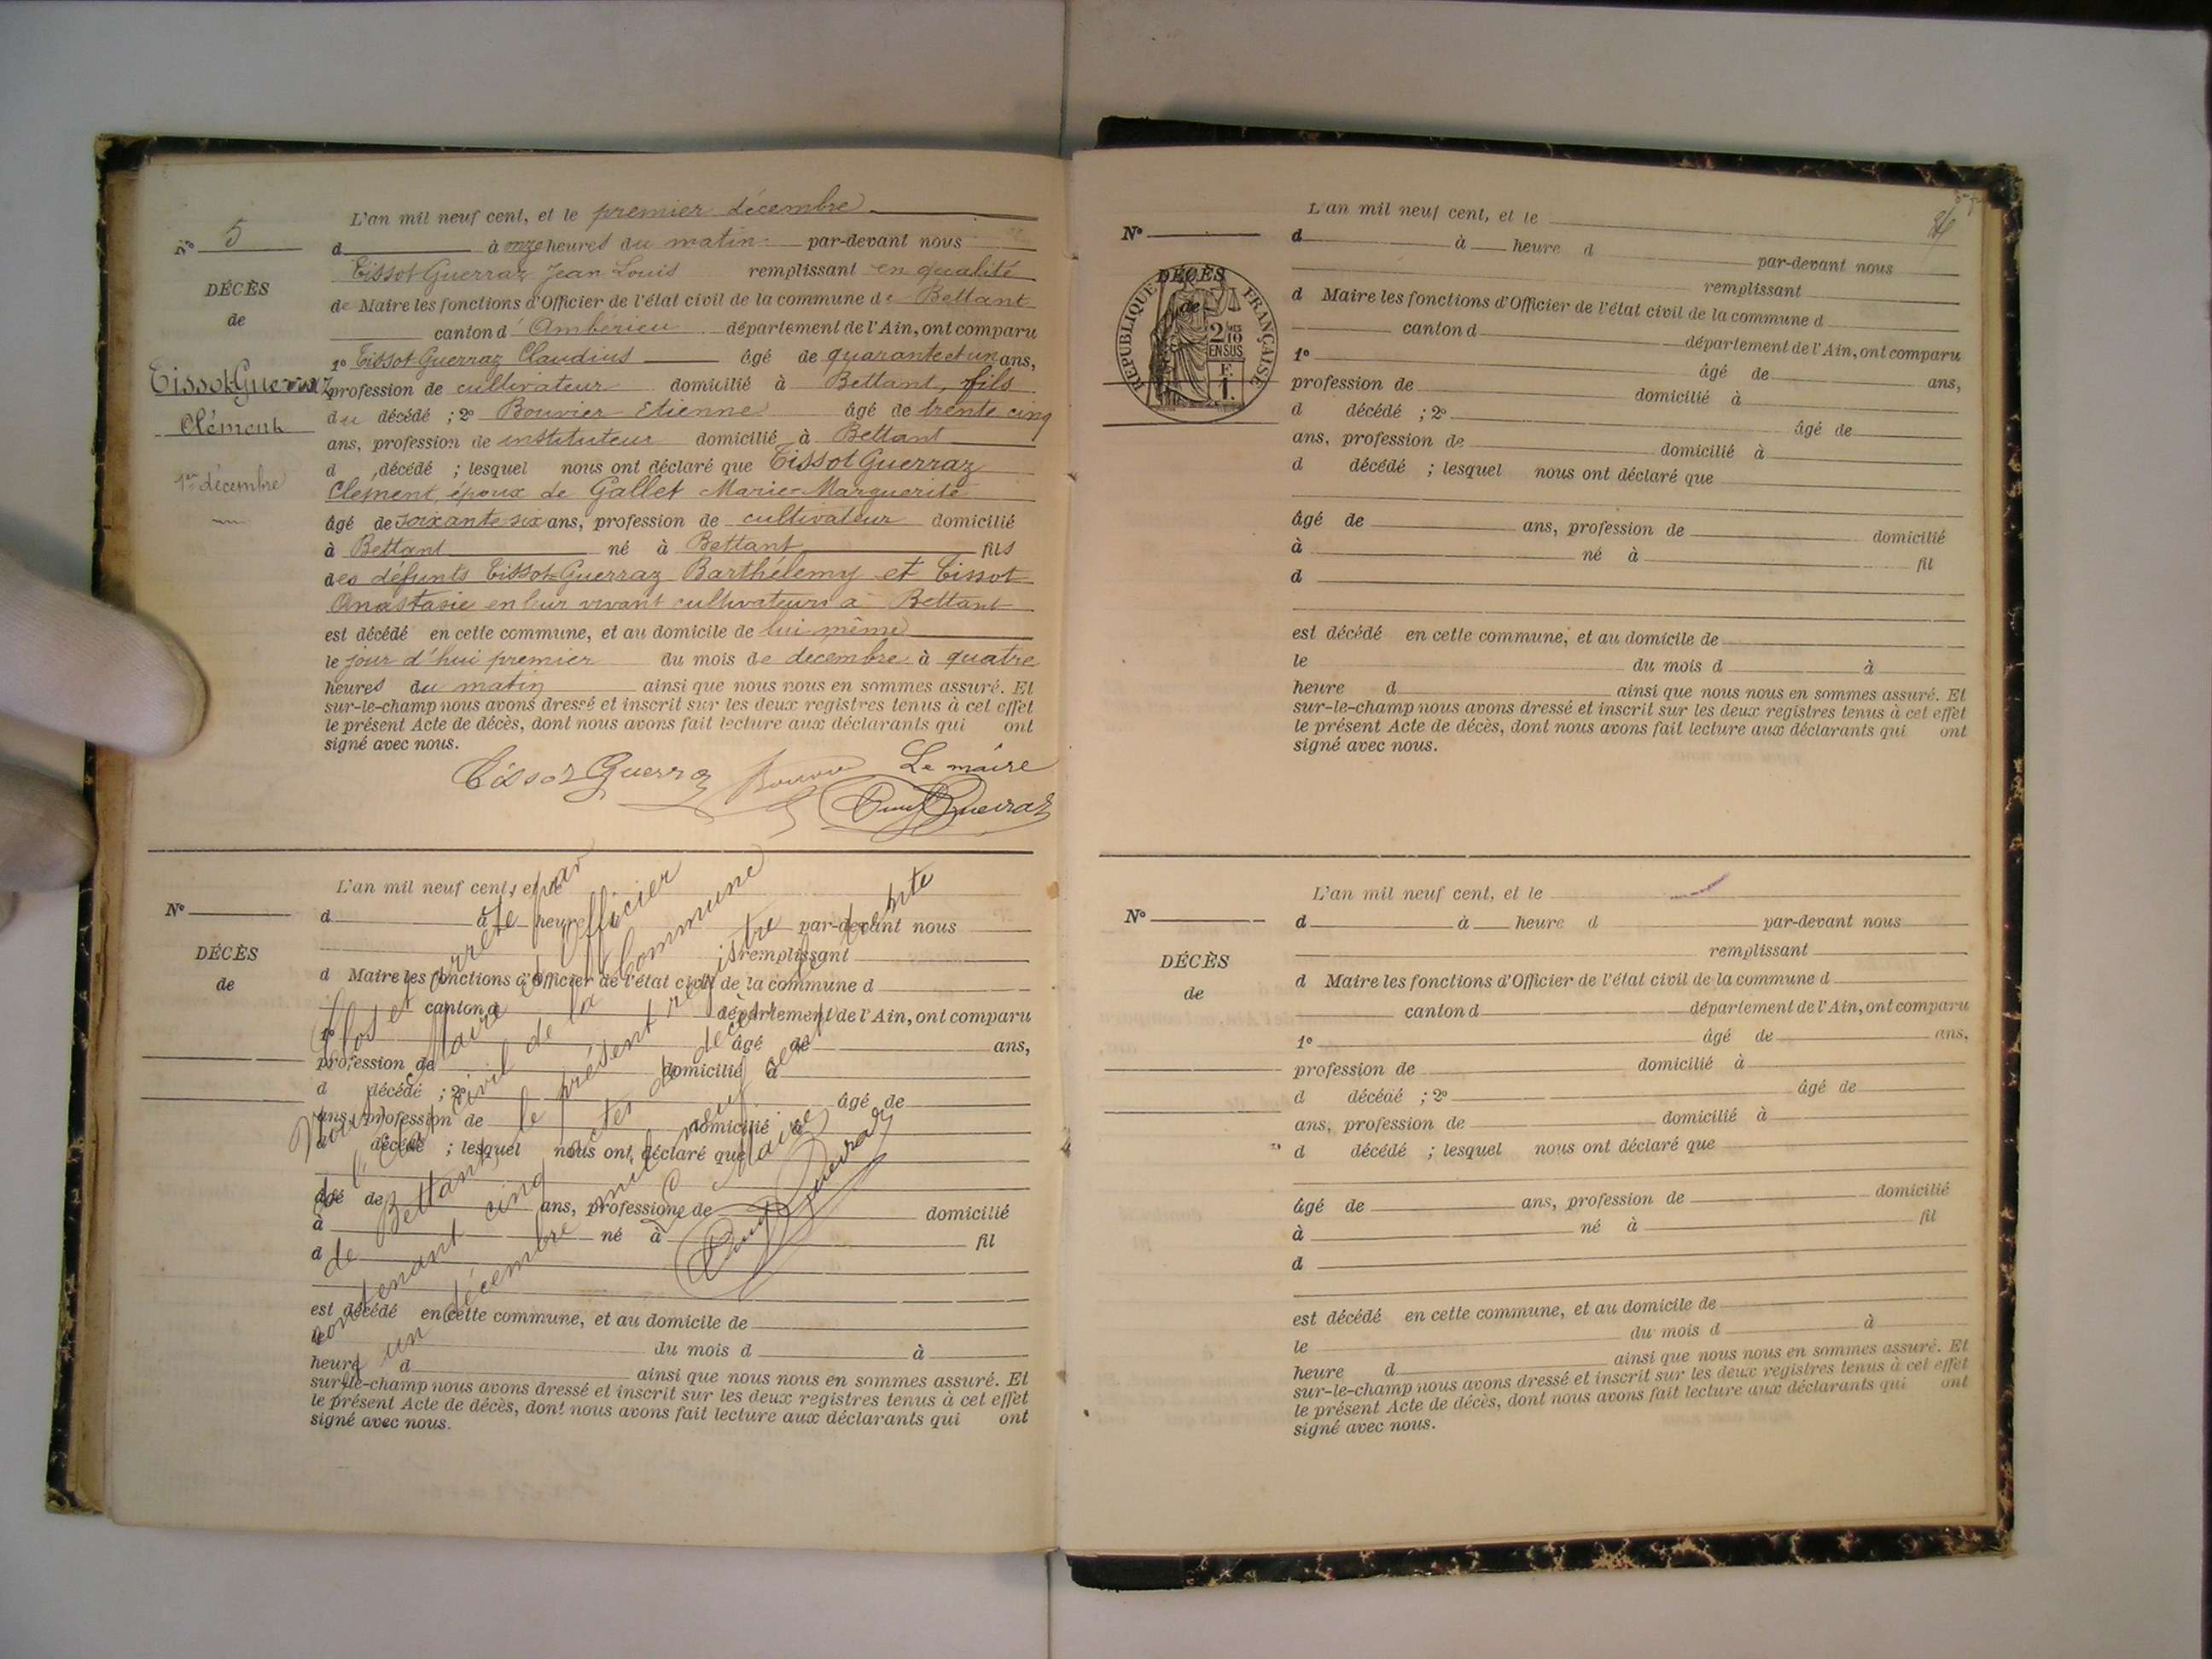 N° 5
DÉCÈS
de
Tissot-Guerraz
Clément
1er décembre
L'an mil neuf cent, et le premier décembre
d à onze heures du matin par-devant nous
Tissot Guerraz Jean Louis remplissant en qualité
de Maire les fonctions d'Officier de l'état civil de la commune de Bettant
canton d'Ambérieu département de l'Ain, ont comparu
1° Tissot Guerraz Claudius âgé de quarante et un ans,
profession de cultivateur domicilié à Bettant, fils
du décédé ; 2° Bouvier Etienne âgé de trente cinq
ans, profession de instituteur domicilié à Bettant
d décédé ; lesquel nous ont déclaré que Tissot Guerraz
Clément, époux de Gallet Marie-Marguerite
âgé de soixante six ans, profession de cultivateur domicilié
à Bettant né à Bettant fils
des défunts Tissot-Guerraz Barthélemy et Tissot
Anastasie en leur vivant cultivateurs à Bettant
est décédé en cette commune, et au domicile de lui-même
le jour d'hui premier du mois de décembre à quatre
heures du matin ainsi que nous nous en sommes assuré. Et
sur-le-champ nous avons dressé et inscrit sur les deux registres tenus à cet effet
le présent Acte de décès, dont nous avons fait lecture aux déclarants qui ont
signé avec nous.
Tissot Guerraz Bouvier Le maire
N°
DÉCÈS
de
L'an mil neuf cent, et le
d à heure par-devant nous
remplissant
d Maire les fonctions d'Officier de l'état civil de la commune d
canton d département de l'Ain, ont comparu
1° âgé de ans,
profession de domicilié à
d décédé ; 2° âgé de
ans, profession de domicilié à
d décédé ; lesquel nous ont déclaré que
âgé de ans, profession de domicilié
à né à fil
d
est décédé en cette commune, et au domicile de
le du mois d à
heure d ainsi que nous nous en sommes assuré. Et
sur-le-champ nous avons dressé et inscrit sur les deux registres tenus à cet effet
le présent Acte de décès, dont nous avons fait lecture aux déclarants qui ont
signé avec nous.
Clos et arrêté par
Nous Maire et officier
de l'état civil de la Commune
de Bettant, le présent registre
contenant cinq actes de décès le trente
et un décembre mil neuf cent
Le Maire
N°
DÉCÈS
de
RÉPUBLIQUE FRANÇAISE
2/10 EN SUS
F.
1.
L'an mil neuf cent, et le
d à heure d par-devant nous
remplissant
d Maire les fonctions d'Officier de l'état civil de la commune d
canton d département de l'Ain, ont comparu
1° âgé de ans,
profession de domicilié à
d décédé ; 2° âgé de
ans, profession de domicilié à
d décédé ; lesquel nous ont déclaré que
âgé de ans, profession de domicilié
à né à fil
d
est décédé en cette commune, et au domicile de
le du mois d à
heure d ainsi que nous nous en sommes assuré. Et
sur-le-champ nous avons dressé et inscrit sur les deux registres tenus à cet effet
le présent Acte de décès, dont nous avons fait lecture aux déclarants qui ont
signé avec nous.
N°
DÉCÈS
de
L'an mil neuf cent, et le
d à heure d par-devant nous
remplissant
d Maire les fonctions d'Officier de l'état civil de la commune d
canton d département de l'Ain, ont comparu
1° âgé de ans,
profession de domicilié à
d décédé ; 2° âgé de
ans, profession de domicilié à
d décédé ; lesquel nous ont déclaré que
âgé de ans, profession de domicilié
à né à fil
d
est décédé en cette commune, et au domicile de
le du mois d à
heure d ainsi que nous nous en sommes assuré. Et
sur-le-champ nous avons dressé et inscrit sur les deux registres tenus à cet effet
le présent Acte de décès, dont nous avons fait lecture aux déclarants qui ont
signé avec nous.